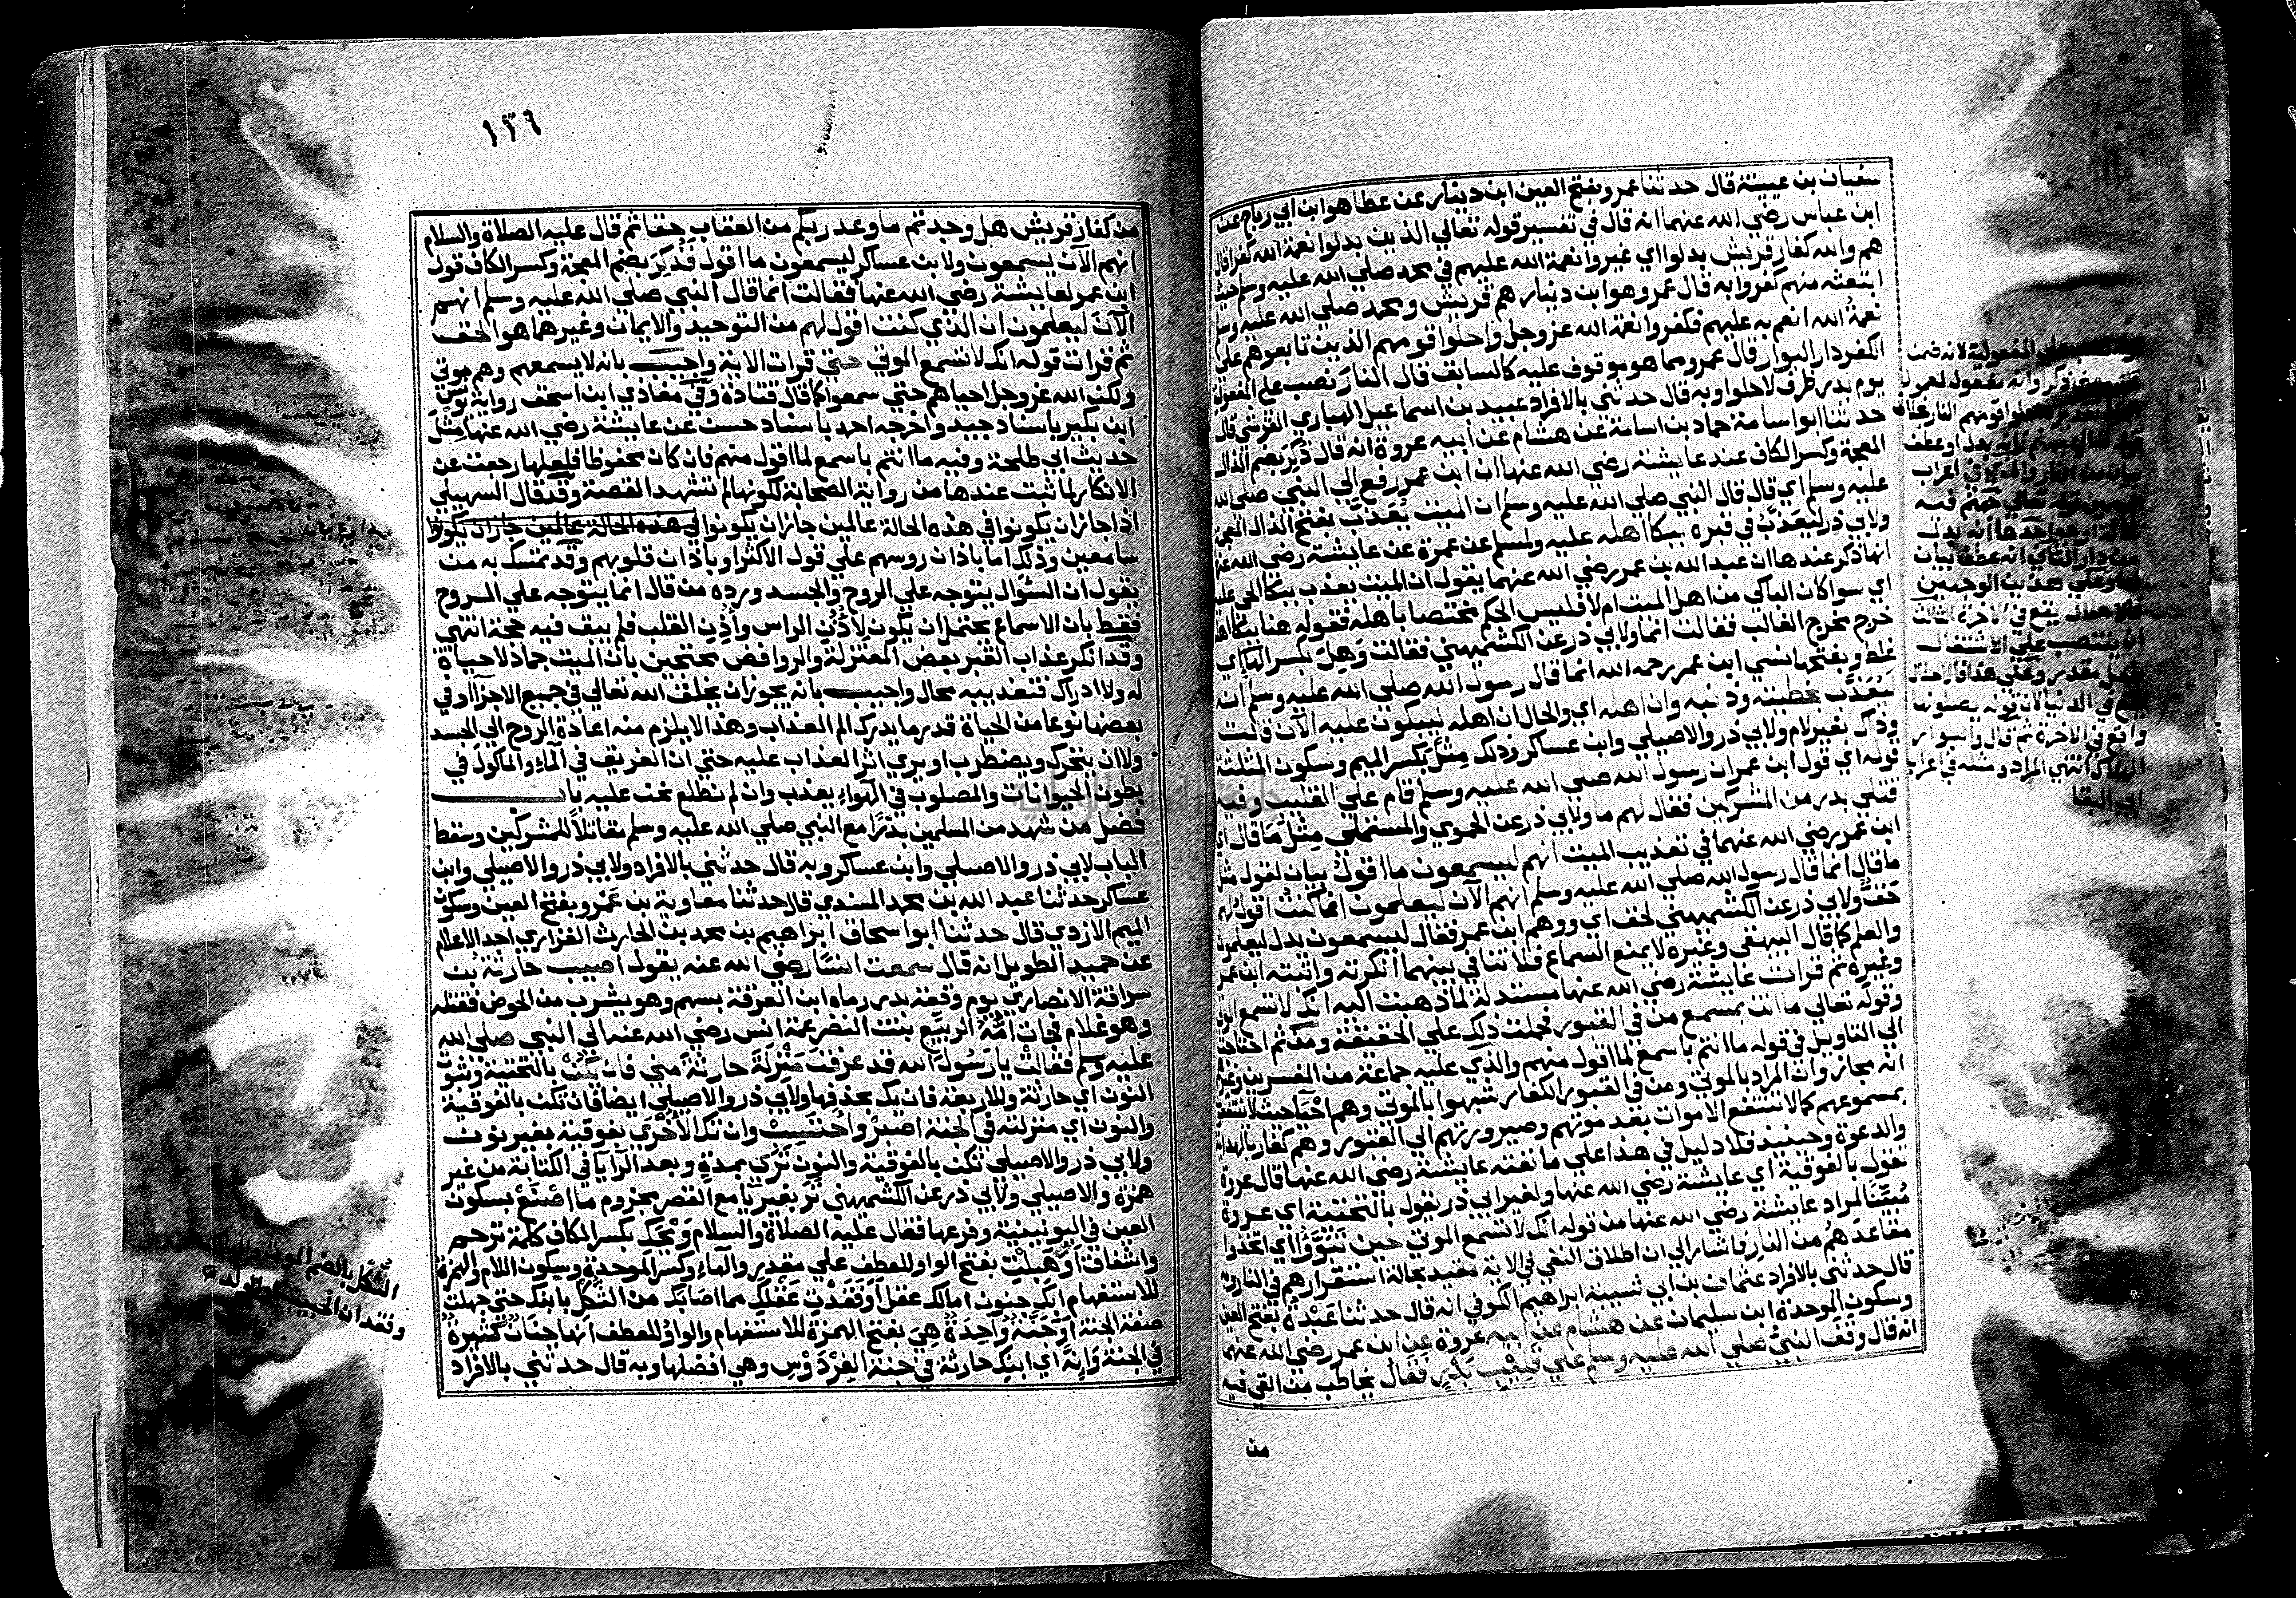 سفيان بن عيينة قال حدثنا عمرو بفتح العين ابن دينار عن عطا هو ابن ابي رباح عن
ابن عباس رضي الله عنهما انه قال في تفسير قوله تعالي الذين بدلوا نعمة الله كفرا قال
هم والله كفار قريش بدلوا اي غيروا نعمة الله عليهم في محمد صلي الله عليه وسلم حيث
ابتعثه منهم كفروا به قال عمرو هو ابن دينار هم قريش ومحمد صلي الله عليه وسلم
نعمة الله انعم به عليهم فكفروا نعمة الله عز وجل واحلوا قومهم الذين تابعوهم علي
الكفر دار البوار قال عمرو مما هو موقوف عليه كالسابق قال النار نصب علي المفعولية
يوم بدر ظرف لاحلوا وبه قال حدثني بالافراد عبيد بن اسماعيل الهباري القرشي قال
حدثنا ابو اسامة حماد بن اسامة عن هشام عن ابيه عروة انه قال ذكر بضم الذال
المعجمة وكسر الكاف عند عايشة رضي الله عنها ان ابن عمر رفع الي النبي صلي الله
عليه وسلم اي قال قال النبي صلي الله عليه وسلم ان الميت يعذب بفتح الذال المعجمة
ولابي ذر ليعذب في قبره ببكا اهله عليه ولمسلم عن عمرة عن عايشة رضي الله عنها
انها ذكر عندها ان عبد الله بن عمر رضي الله عنهما يقول ان الميت يعذب ببكا الحي عليه
اي سوا كان الباكي من اهل الميت ام لا فليس الحكم مختصا باهله فقوله هنا ببكا اهله
خرج مخرج الغالب فقالت انما ولابي ذر عن الكشميهني فقالت وهل بكسر الها اي
غلط وبفتحها نسي ابن عمر رحمه الله انما قال رسول الله صلي الله عليه وسلم انه
ليعذب بخطيئته وذنبه وان اهله اي والحال ان اهله ليبكون عليه الآن قالت
وذاك بغير لام ولابي ذر والاصيلي وابن عساكر وذلك مثل بكسر الميم وسكون المثلثة
قوله اي قول ابن عمر ان رسول الله صلي الله عليه وسلم قام علي القليب وفيه
قتلي بدر من المشركين فقال لهم ما ولابي ذر عن الحموي والمستملي مثل ما قال اي
ابن عمر رضي الله عنهما في تعذيب الميت انهم ليسمعون ما اقول بيان لقوله مثل
ما قال انما قال رسول الله صلي الله عليه وسلم انهم الآن ليعلمون انما كنت اقول لهم
حق ولابي ذر عن الكشميهني لحق اي ووهم ابن عمر فقال ليسمعون بدل ليعلمون
والعلم كما قال البيهقي وغيره لا يمنع السماع فلا تنافي بينهما انكرته واثبته ابن عمر
وغيره ثم قرات عايشة رضي الله عنها مستدلة لما ذهبت اليه انك لا تسمع الموتي
وقوله تعالي ما انت بمسمع من في القبور فحملت ذلك علي الحقيقة ومن ثم احتاجت
الي التاويل في قوله ما انتم باسمع لما اقول منهم والذي عليه جماعة من المفسرين وغيرهم
انه مجاز وان المراد بالموتي ومن في القبور الكفار شبهوا بالموتي وهم احيا حيث لا ينتفعون
بمسموعهم كما لا تنتفع الاموات بعد موتهم وصيرورتهم الي القبور وهم كفار بالهداية
والدعوة وحينيذ فلا دليل في هذا علي ما نفته عايشة رضي الله عنها قال عروة
تقول بالفوقية اي عايشة رضي الله عنها ولغير ابي ذر يقول بالتحتية اي عروة
مبينا لمراد عايشة رضي الله عنها من قوله انك لا تسمع الموتي حين تبووا اي اتخذوا
مقاعدهم من النار فاشار الي ان اطلاق النفي في الاية مقيد بحالة استقرارهم في النار وبه
قال حدثني بالافراد عثمان بن ابي شيبة ابراهيم الكوفي انه قال حدثنا عبدة بفتح العين
وسكون الموحدة ابن سليمان عن هشام عن ابيه عروة عن ابن عمر رضي الله عنهما
انه قال وقف النبي صلي الله عليه وسلم علي قليب بدر فقال يخاطب من القي فيه
من
١٣٦
من كفار قريش هل وجدتم ما وعد ربكم من العقاب حقا ثم قال عليه الصلاة والسلام
انهم الآن يسمعون ولابن عساكر ليسمعون ما اقول فذكر بضم المعجمة وكسر الكاف قول
ابن عمر لعايشة رضي الله عنها فقالت انما قال النبي صلي الله عليه وسلم انهم
الآن ليعلمون ان الذي كنت اقول لهم من التوحيد والايمان وغيرهما هو الحق
ثم قرات قوله انك لا تسمع الموتي حتي قرات الاية واجيب بانه لا يسمعهم وهم موتي
ولكن الله عز وجل احياهم حتي سمعوا كما قال قتادة وفي مغازي ابن اسحق رواية يونس
ابن بكير باسناد جيد واخرجه احمد باسناد حسن عن عايشة رضي الله عنها مثل
حديث ابي طلحة وفيه ما انتم باسمع لما اقول منهم فان كان محفوظا فلعلها رجعت عن
الانكار لما ثبت عندها من رواية الصحابة لكونها لم تشهد القصة وقد قال السهيلي
اذا جاز ان يكونوا في هذه الحالة عالمين جاز ان يكونوا في هذه الحالة عالمين جاز ان يكونوا
سامعين وذلك اما باذان روسهم علي قول الاكثر او باذان قلوبهم وقد تمسك به من
يقول ان السؤال يتوجه علي الروح والجسد ورده من قال انما يتوجه علي الروح
فقط بان الاسماع يحتمل ان يكون لاذن الراس واذن القلب فلم يبق فيه حجة انتهي
وقد انكر عذاب القبر بعض المعتزلة والروافض محتجين بان الميت جماد لا حياة
له ولا ادراك فتعذيبه محال واجيب بانه يجوز ان يخلق الله تعالي في جميع الاجزا او في
بعضها نوعا من الحياة قدر ما يدرك الم العذاب وهذا لا يلزم منه اعادة الروح الي الجسد
ولا ان يتحرك ويضطرب او يري اثر العذاب عليه حتي ان الغريق في الماء والماكول في
بطون الحيوانات والمصلوب في الهواء يعذب وان لم نطلع نحن عليه باب
فضل من شهد من المسلمين بدرا مع النبي صلي الله عليه وسلم مقاتلا للمشركين وسقط
الباب لابي ذر والاصيلي وابن عساكر وبه قال حدثني بالافراد ولابي ذر والاصيلي وابن
عساكر حدثنا عبد الله بن محمد المسندي قال حدثنا معاوية بن عمرو بفتح العين وسكون
الميم الازدي قال حدثنا ابو اسحاق ابراهيم بن محمد بن الحارث الفزاري احد الاعلام
عن حميد الطويل انه قال سمعت انسا رضي الله عنه يقول اصيب حارثة بن
سراقة الانصاري يوم وقعة بدر رماه ابن العرقة بسهم وهو يشرب من الحوض فقتله
وهو غلام فجات امه الربيع بنت النضر عمة انس رضي الله عنه الي النبي صلي الله
عليه وسلم فقالت يا رسول الله قد عرفت منزلة حارثة مني فان يكن بالتحتية وثبوت
النون اي حارثة وللاربعة فان يك بحذفها ولابي ذر والاصيلي ايضا فان تكن بالفوقية
والنون اي منزلته في الجنة اصبر واحتسب وان تك الاخري بفوقية بغير نون
ولابي ذر والاصيلي تكن بالفوقية والنون تري بمدة وبعد الرا يا في الكتابة من غير
همزة والاصيلي ولابي ذر عن الكشميهني تر بغير يا مع القصر مجزوم ما اصنع بسكون
العين في اليونينية وفرعها فقال عليه الصلاة والسلام ويحك بكسر الكاف كلمة ترحم
واشفاق اوهبلت بفتح الواو للعطف علي مقدر والهاء وكسر الموحدة وسكون اللام والهمزة
للاستفهام ابك جنون امالك عقل او فقدت عقلك مما اصابك من الثكل بابنك حتي جهلت
صفة الجنة اوجنة واحدة هي بفتح الهمزة للاستفهام والواو للعطف انها جنات كثيرة
في الجنة وانه اي ابنك حارثة في جنة الفردوس وهي افضلها وبه قال حدثني بالافراد
الثكل بالضم الموت والهلاك
وفقدان الحبيب او الولد